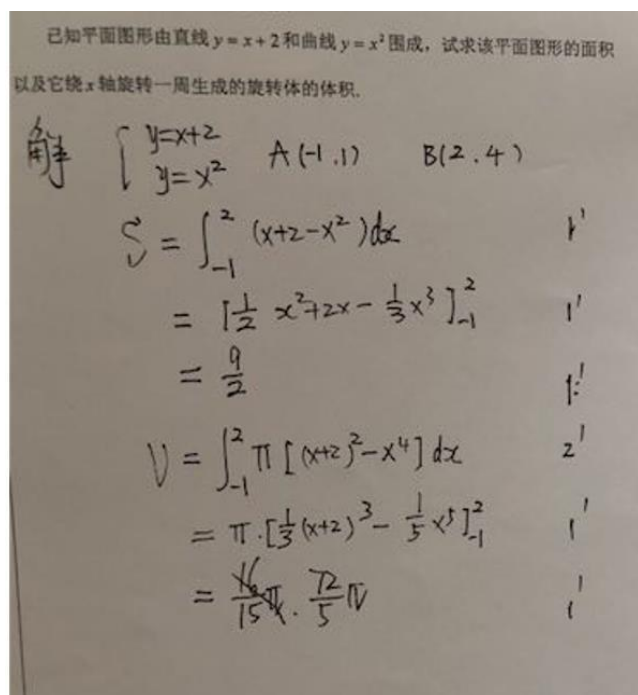 已知平面图形由直线 y = x + 2 和曲线 y = x² 围成，试求该平面图形的面积
以及它绕 x 轴旋转一周生成的旋转体的体积.
解 { y=x+2 y=x² A(-1,1) B(2,4)
S = ∫_{-1}^{2} (x+2-x²)dx 1'
= [1/2 x²+2x - 1/3 x³]_{-1}^{2} 1'
= 9/2 1'
V = ∫_{-1}^{2} π[(x+2)²-x⁴]dx 2'
= π·[1/3(x+2)³ - 1/5 x⁵]_{-1}^{2} 1'
= 72/5 π 1'